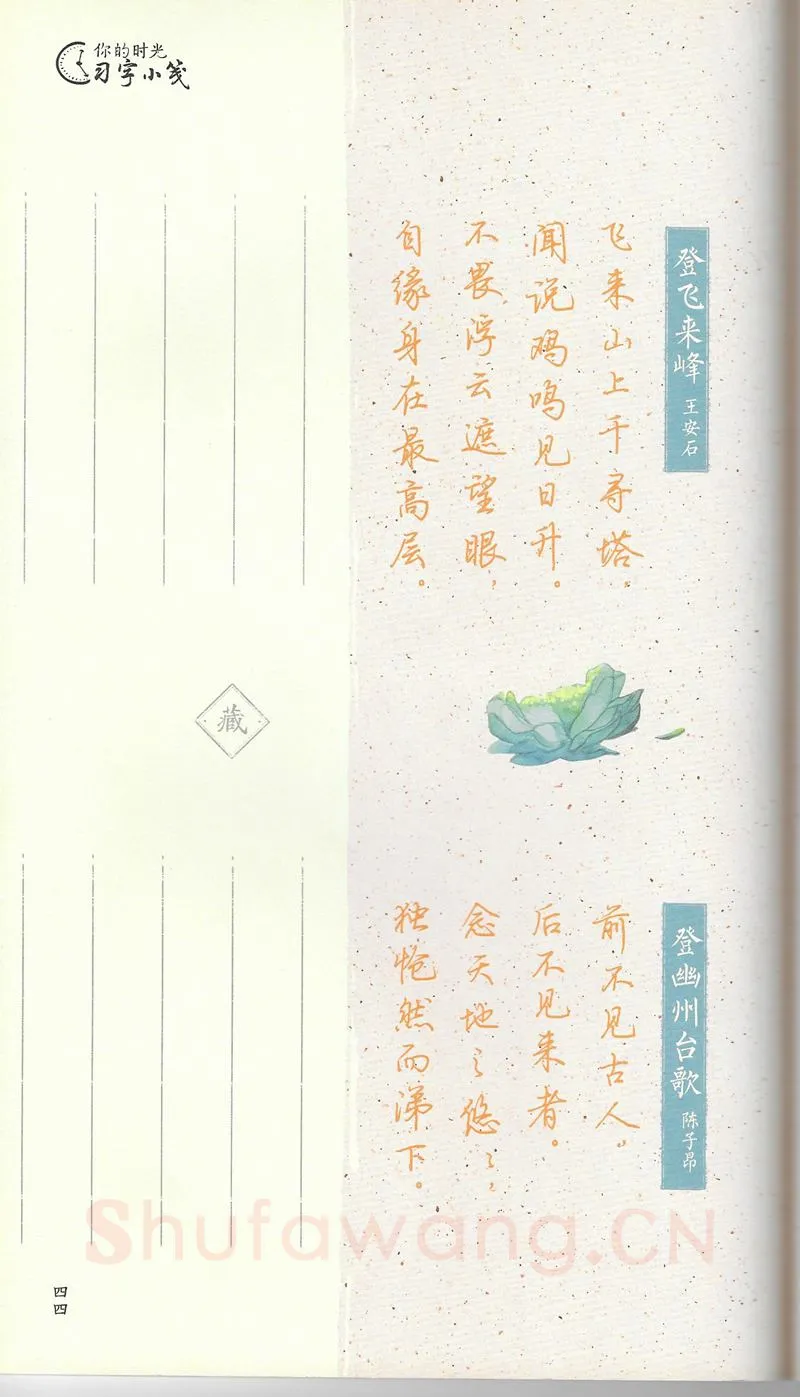 你的时光
习字小笺
登飞来峰 王安石
飞来山上千寻塔，
闻说鸡鸣见日升。
不畏浮云遮望眼，
自缘身在最高层。
藏
登幽州台歌 陈子昂
前不见古人，
后不见来者。
念天地之悠々，
独怆然而涕下。
四四
Shufawang.CN